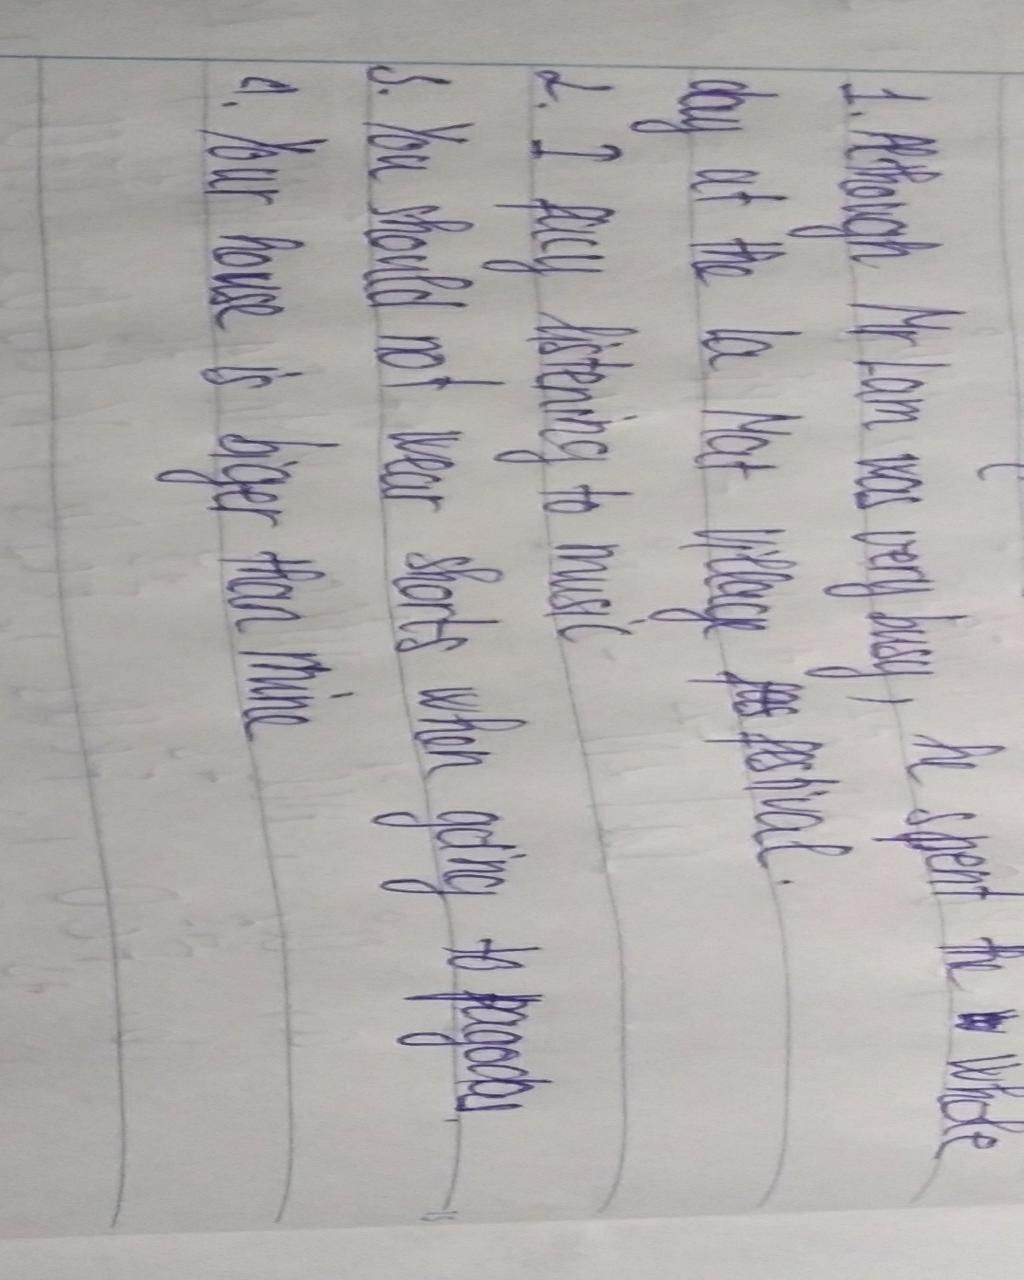 1. Although Mr Lam was very busy, he spent the whole
day at the La Mat Village festival.
2. I facy listening to music
3. You should not wear shorts when going to pagodas.
4. Your house is biger than mine